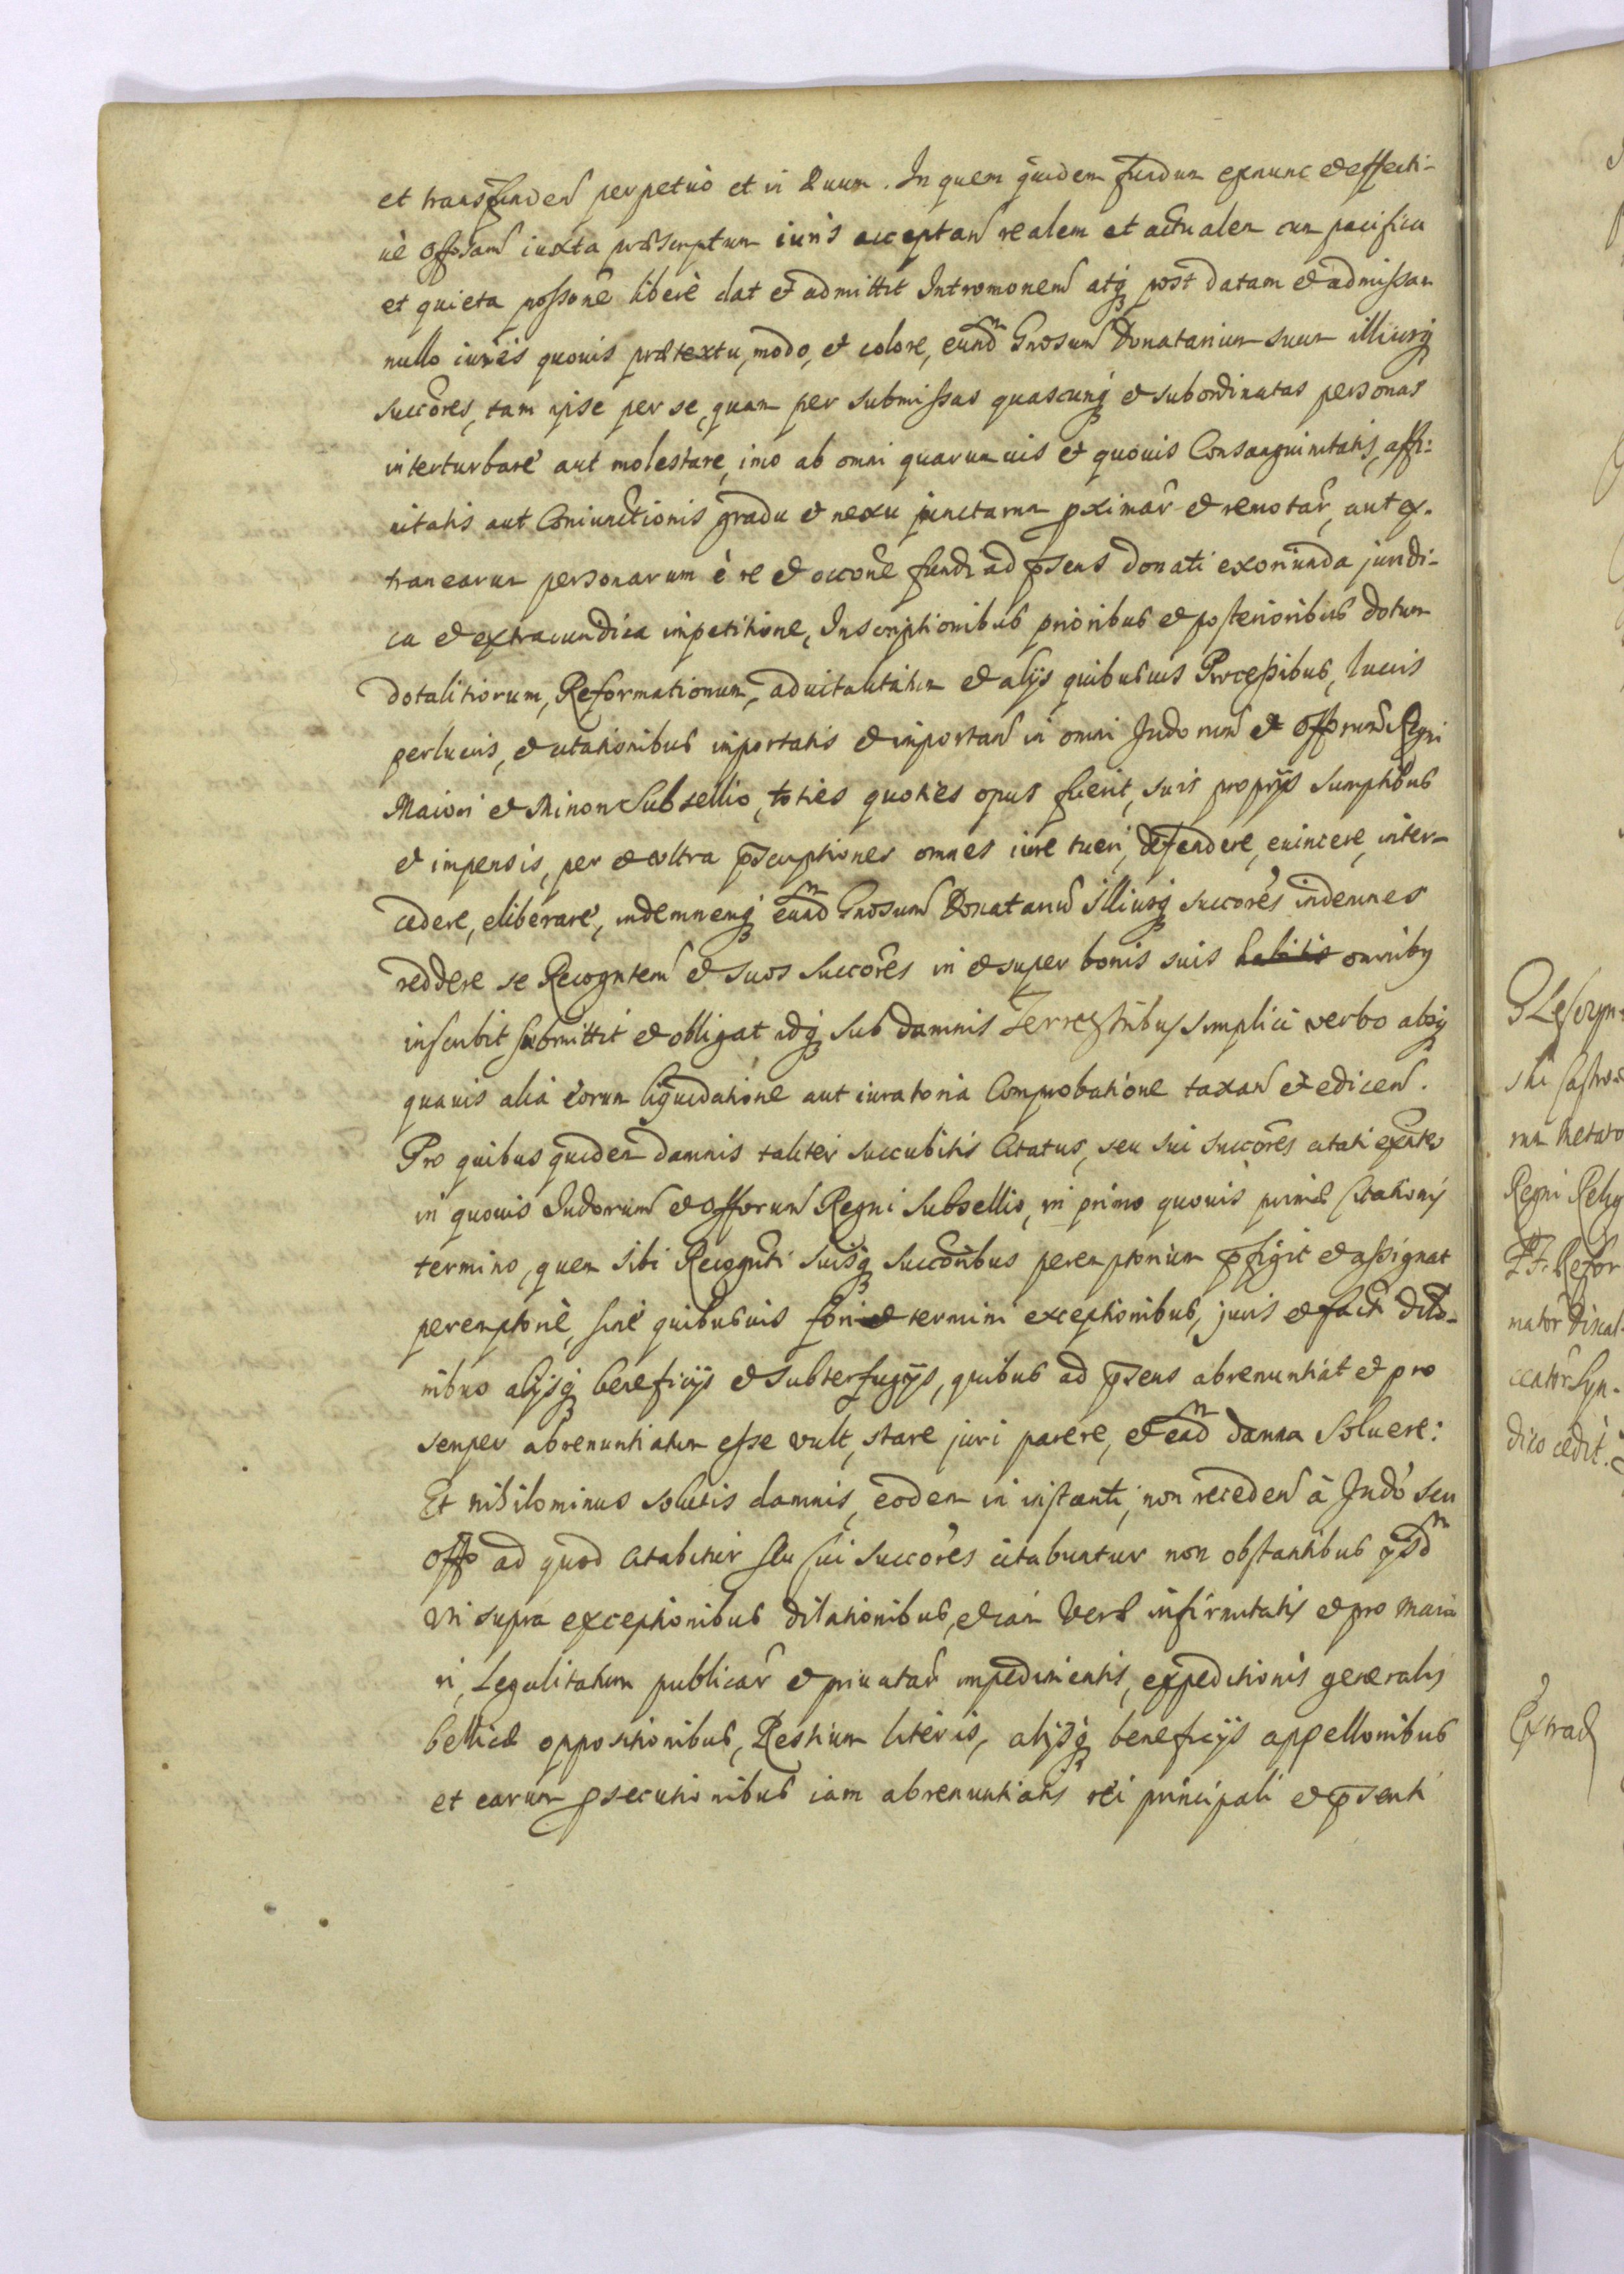 et transfunden perpetuò et in æuum. In quem quidem fundum exnunc et effecti-
uè Offosam iuxta præscriptum iuris acceptan realem et actualem cum pacifica
et quieta possone liberè dat et admittit Intromonem atq post datam et admissam
nullo iuris quouis prætextu, modo, et colore, eundm Gnosum Donatarium suum illiusq
succores, tam ipse per se, quam per submissas quascunq et subordinatas personas
interturbare aut molestare, imo ab omni quarumuis et quouis Consanguinitatis, affi:
nitatis aut Coniunctionis gradu et nexu junctarum pximar et remotar, aut ex-
tranearum personarum è re et occone fundi ad psens donati exoriunda juridi-
ca et extraiuridica impetitione, Inscriptionibus prioribus et posterioribus dotum
dotalitiorum, Reformationum, aduitalitatum et alijs quibusuis Processibus, lucris
perlucris, et citationibus importatis et importan in omni Judorum et Offorum Regni
Maiori et Minori Subsellio, toties quoties opus fuerit, suis proprijs sumptibus
et impensis, per et ultra pscriptiones omnes iure tueri, defendere, euincere, inter-
cedere, eliberare, indemnemq eundm Gnosum Donatariu illiusq succores indemnes
reddere se Recogntem et suos succores in et super bonis suis habitis omniby
inscribit submittit et obligat idq sub damnis Terrestribus simplici verbo absq
quauis alia eorum liquidatione aut iuratoria Comprobatione taxan et edicen.
Pro quibus quidem damnis taliter succubitis Citatus, seu sui succores citati exntes
in quouis Judorum et Offorum Regni Subsellio, in primo quouis primæ Citationis
termino, quem sibi Recognti suisq succoribus peremptorium pfigit et assignat
peremptoriè, sine quibusuis fori et termini exceptionibus, juris et facti dilo-
nibus alijsq beneficijs et subterfugijs, quibus ad psens abrenuntiat et pro
semper abrenuntiatum esse vult, stare juri parere, et eadm damna soluere:
Et nihilominus solutis damnis, eodem in instanti, non receden à Judo seu
Offo ad quod citabitur seu sui succores citabuntur non obstantibus ysdm
vti supra exceptionibus dilationibus, etiam Veræ infirmitatis et pro maiori
ri, Legalitatum publicar et priuatar impedimentis, expeditionis generalis
bellicæ oppositionibus, Restium literis, alijsq beneficijs appellonibus
et earum psecutionibus iam abrenuntiatis rei principali et psenti
Regni
mator
dico cedit.
Extrad